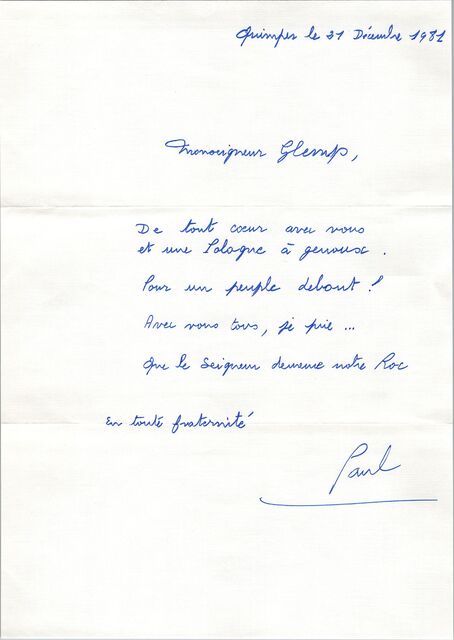 Quimper le 31 Décembre 1981
Monseigneur Glemp,
De tout cœur avec vous
et une Pologne à genoux.
Pour un peuple debout !
Avec vous tous, je prie ...
Que le Seigneur demeure notre Roc
En toute fraternité
Paul